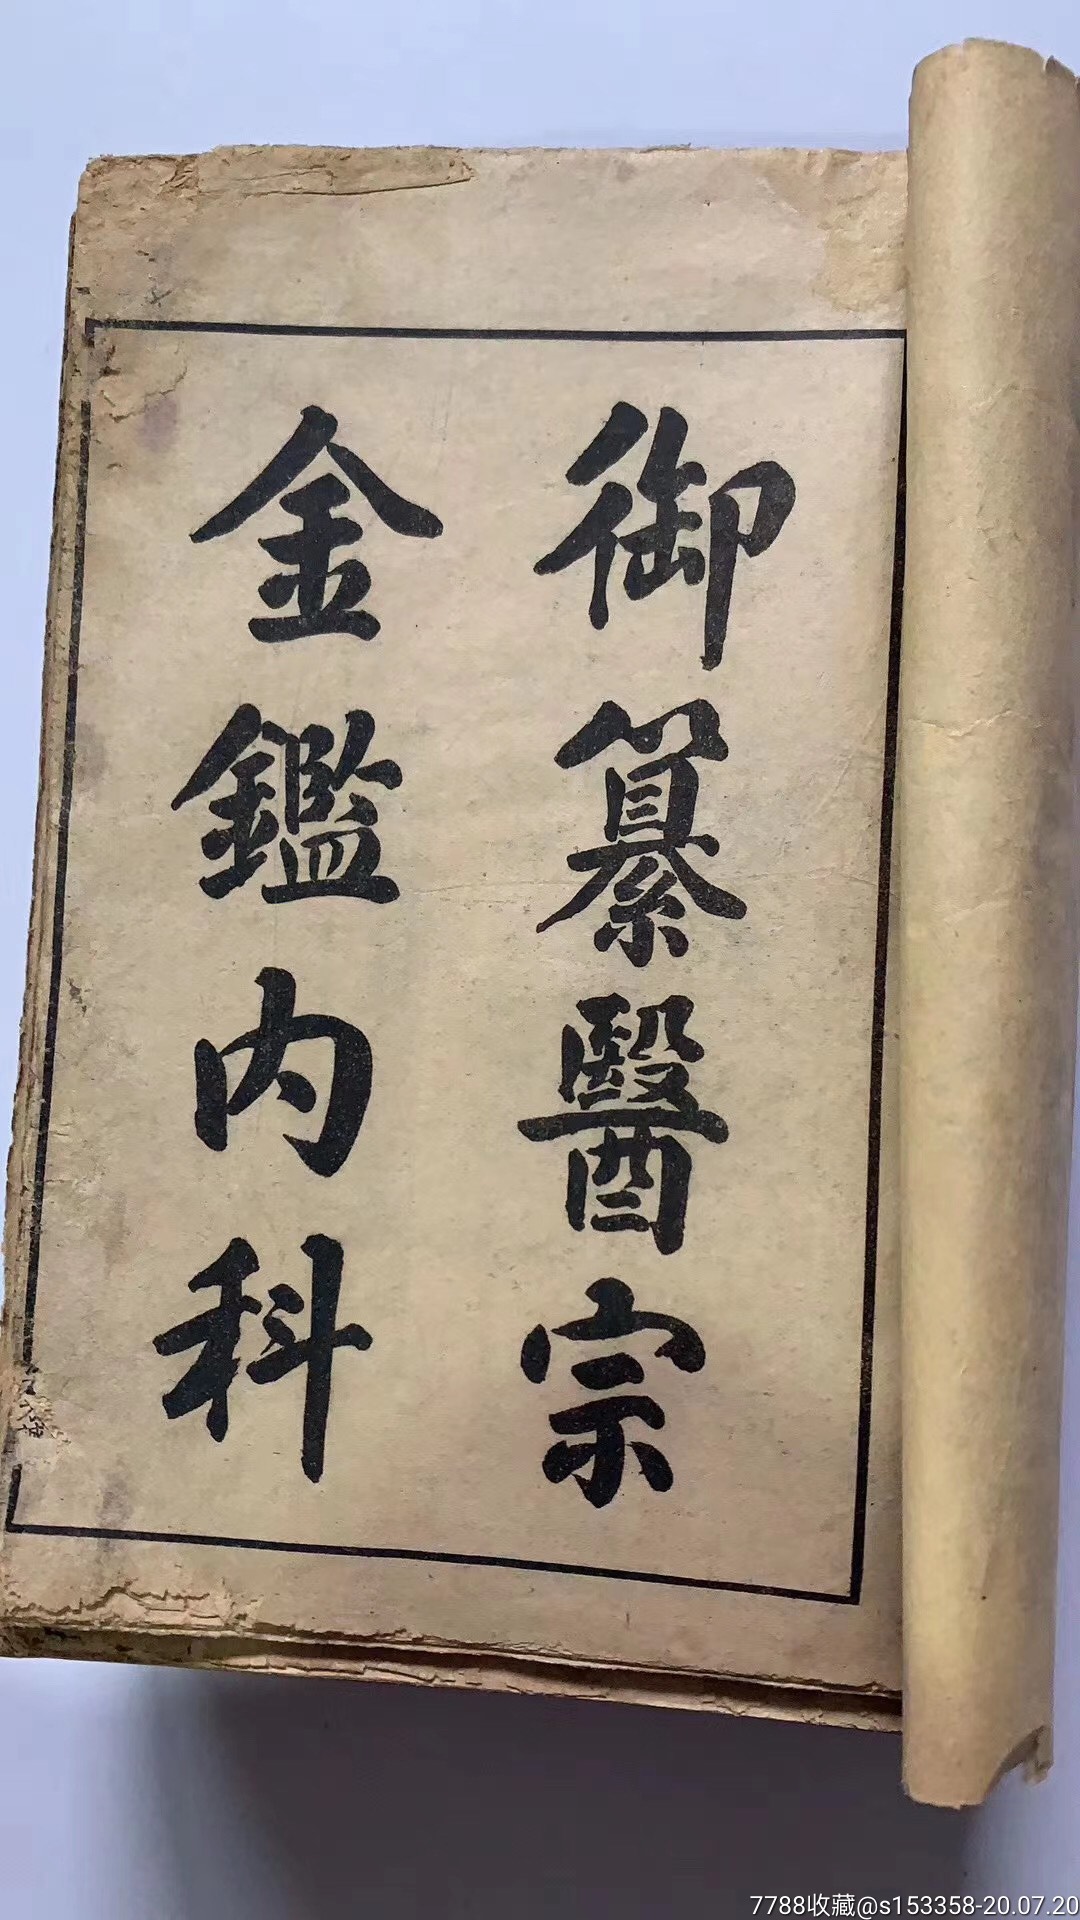 御纂醫宗
金鑑内科
7788收藏@s153358-20.07.20